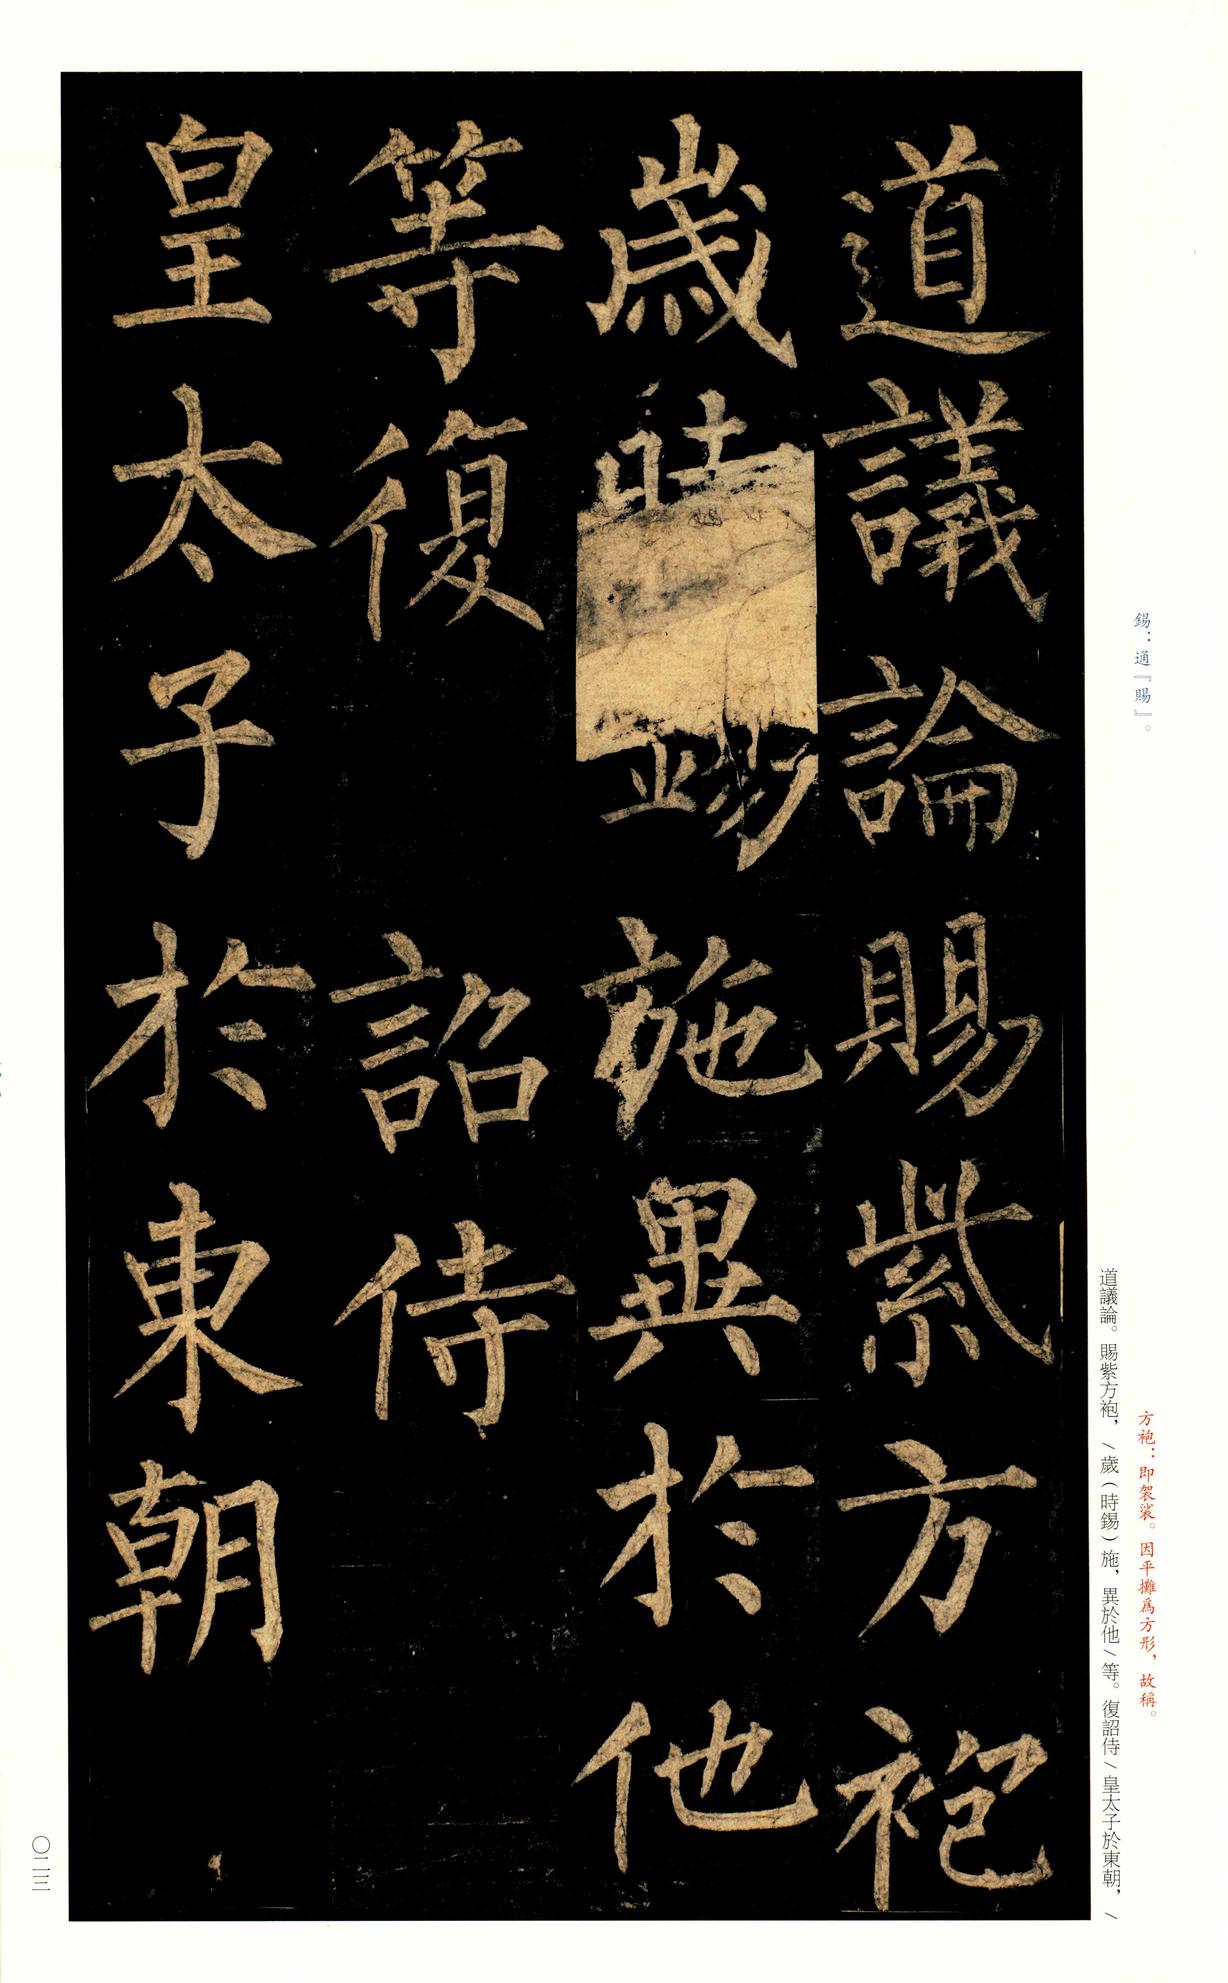 道議論賜紫方袍
歲時錫施異於他
等復詔侍
皇太子於東朝
錫：通『賜』。
方袍：即袈裟。因平攤爲方形，故稱。
道議論。賜紫方袍，/歲（時錫）施，異於他/等。復詔侍/皇太子於東朝，/
〇二三